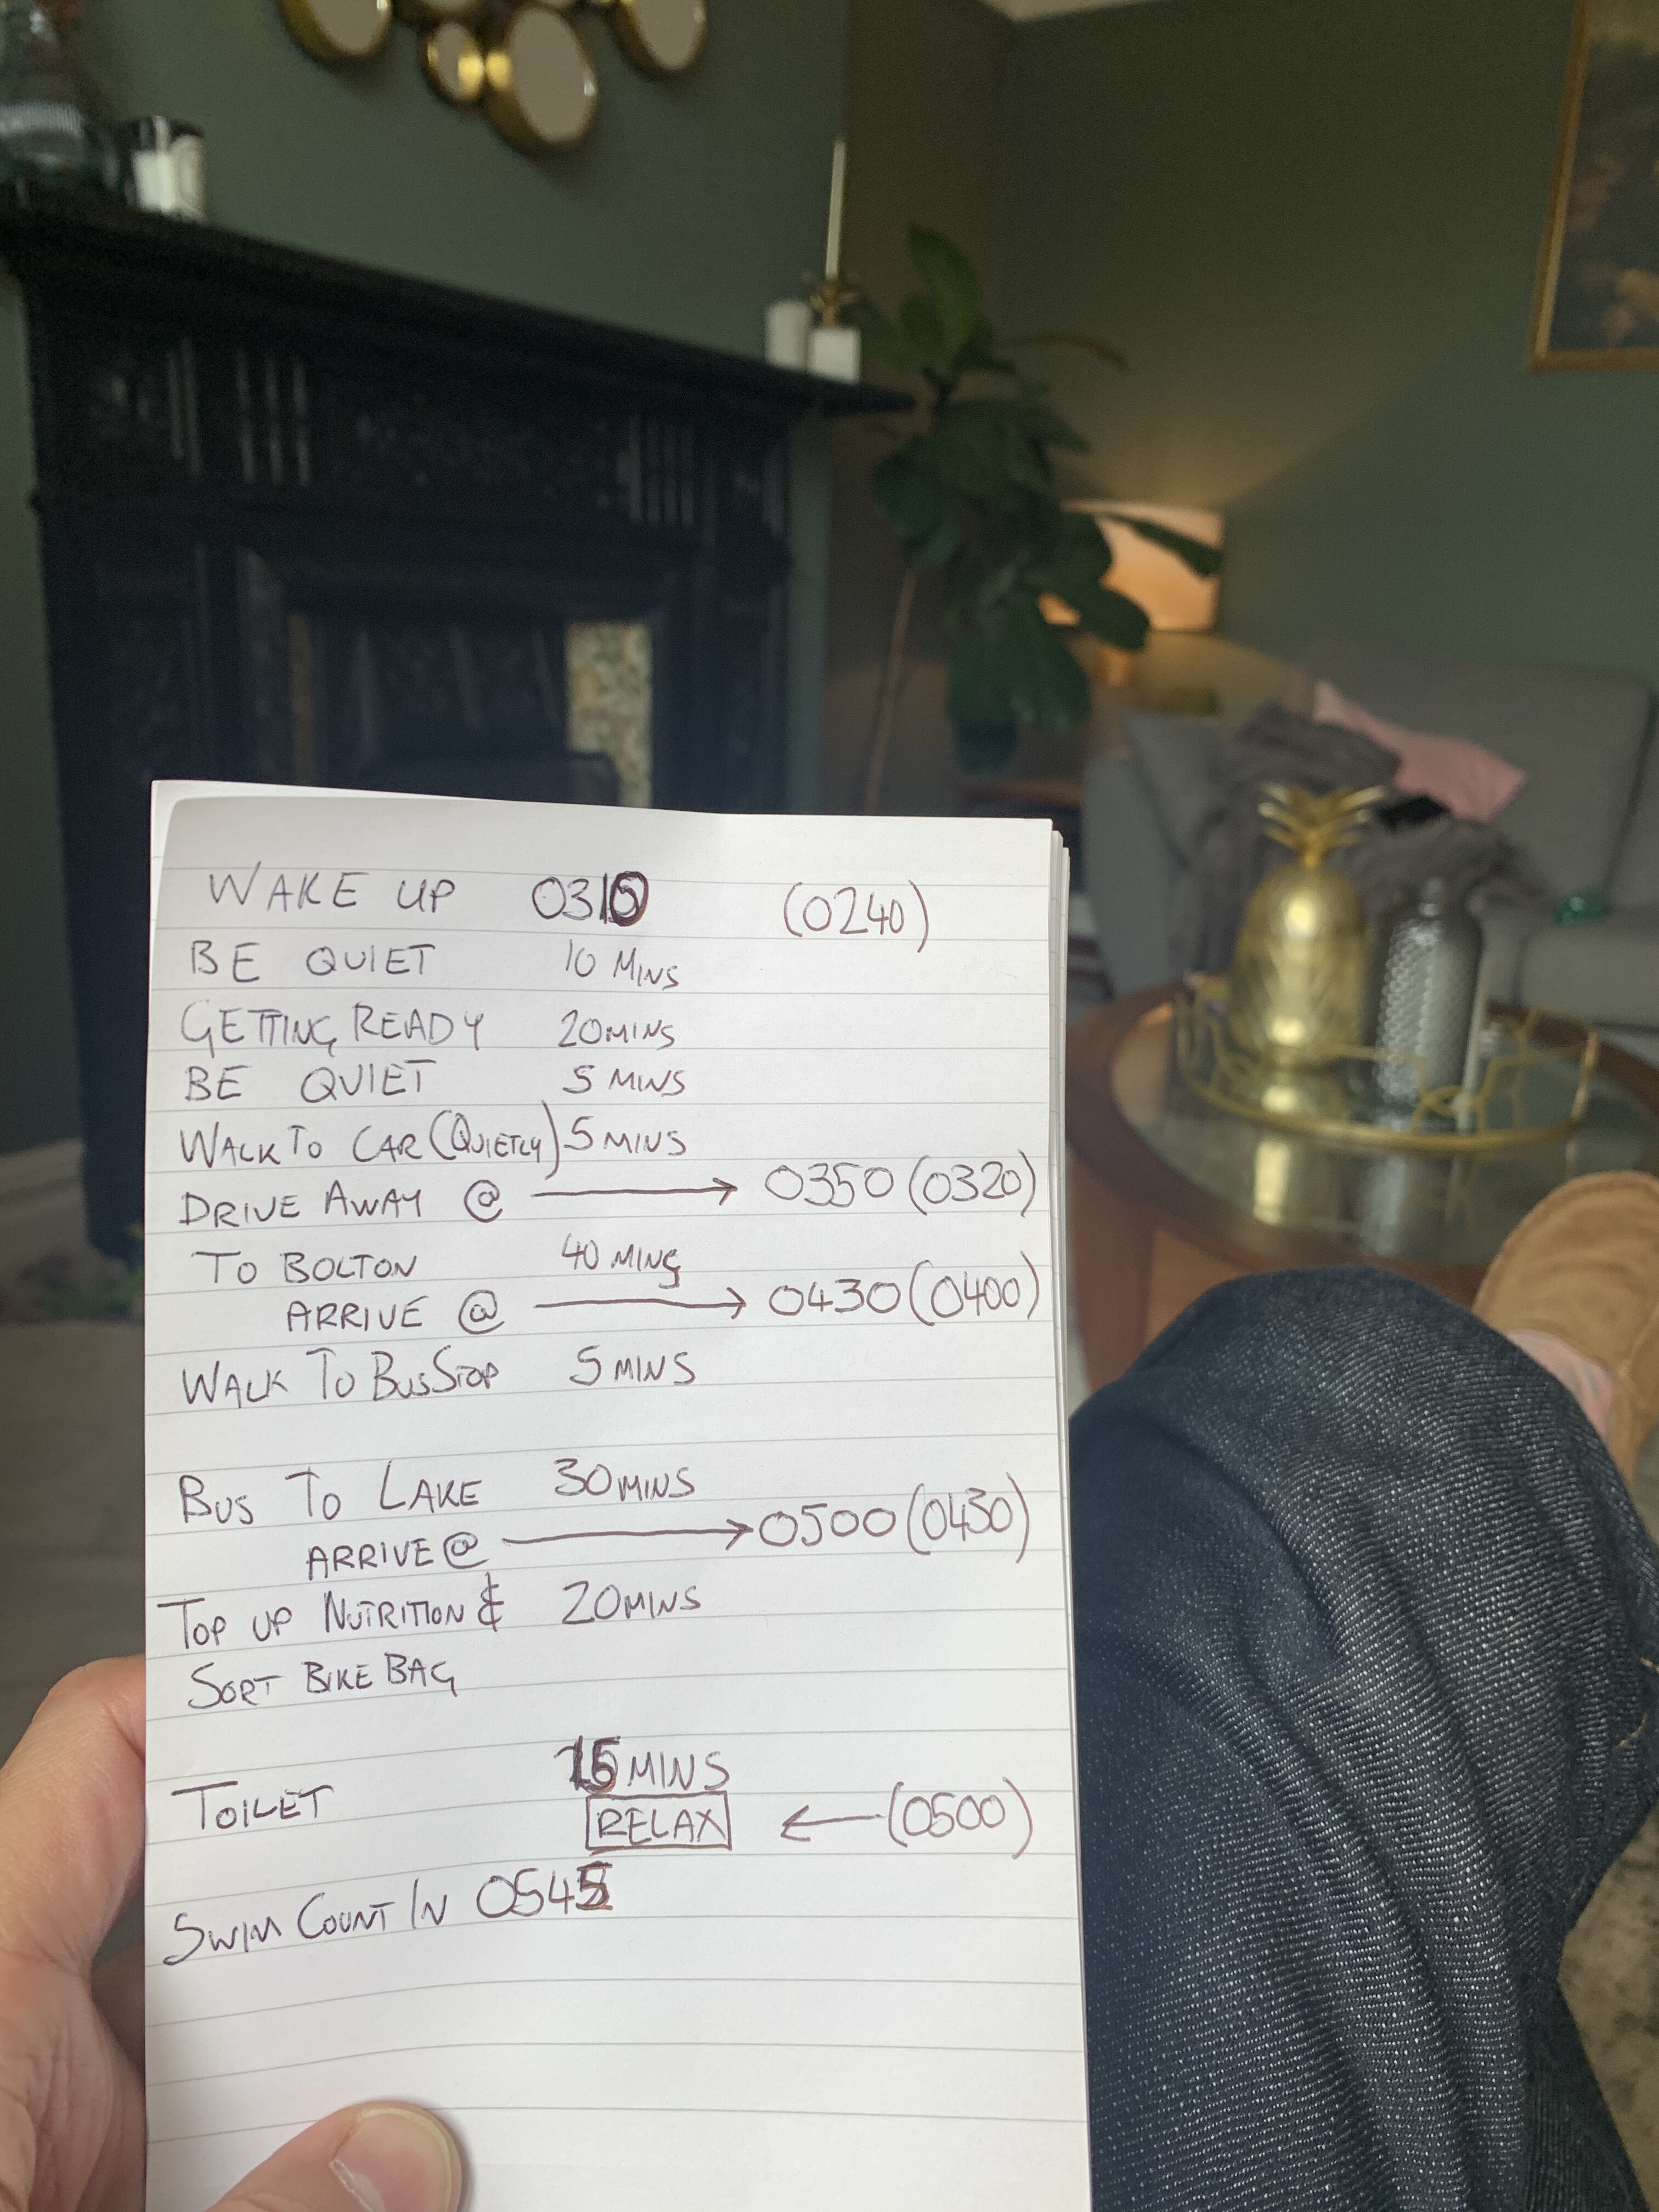 WAKE UP 0310 (0240)
BE QUIET 10 MINS
GETTING READY 20 MINS
BE QUIET 5 MINS
WALK TO CAR (QUIETLY) 5 MINS
DRIVE AWAY @ → 0350 (0320)
TO BOLTON 40 MINS
ARRIVE @ → 0430 (0400)
WALK TO BUS STOP 5 MINS
BUS TO LAKE 30 MINS
ARRIVE @ → 0500 (0430)
TOP UP NUTRITION & 20 MINS
SORT BIKE BAG
TOILET 15 MINS
RELAX ← (0500)
SWIM COUNT IN 0545